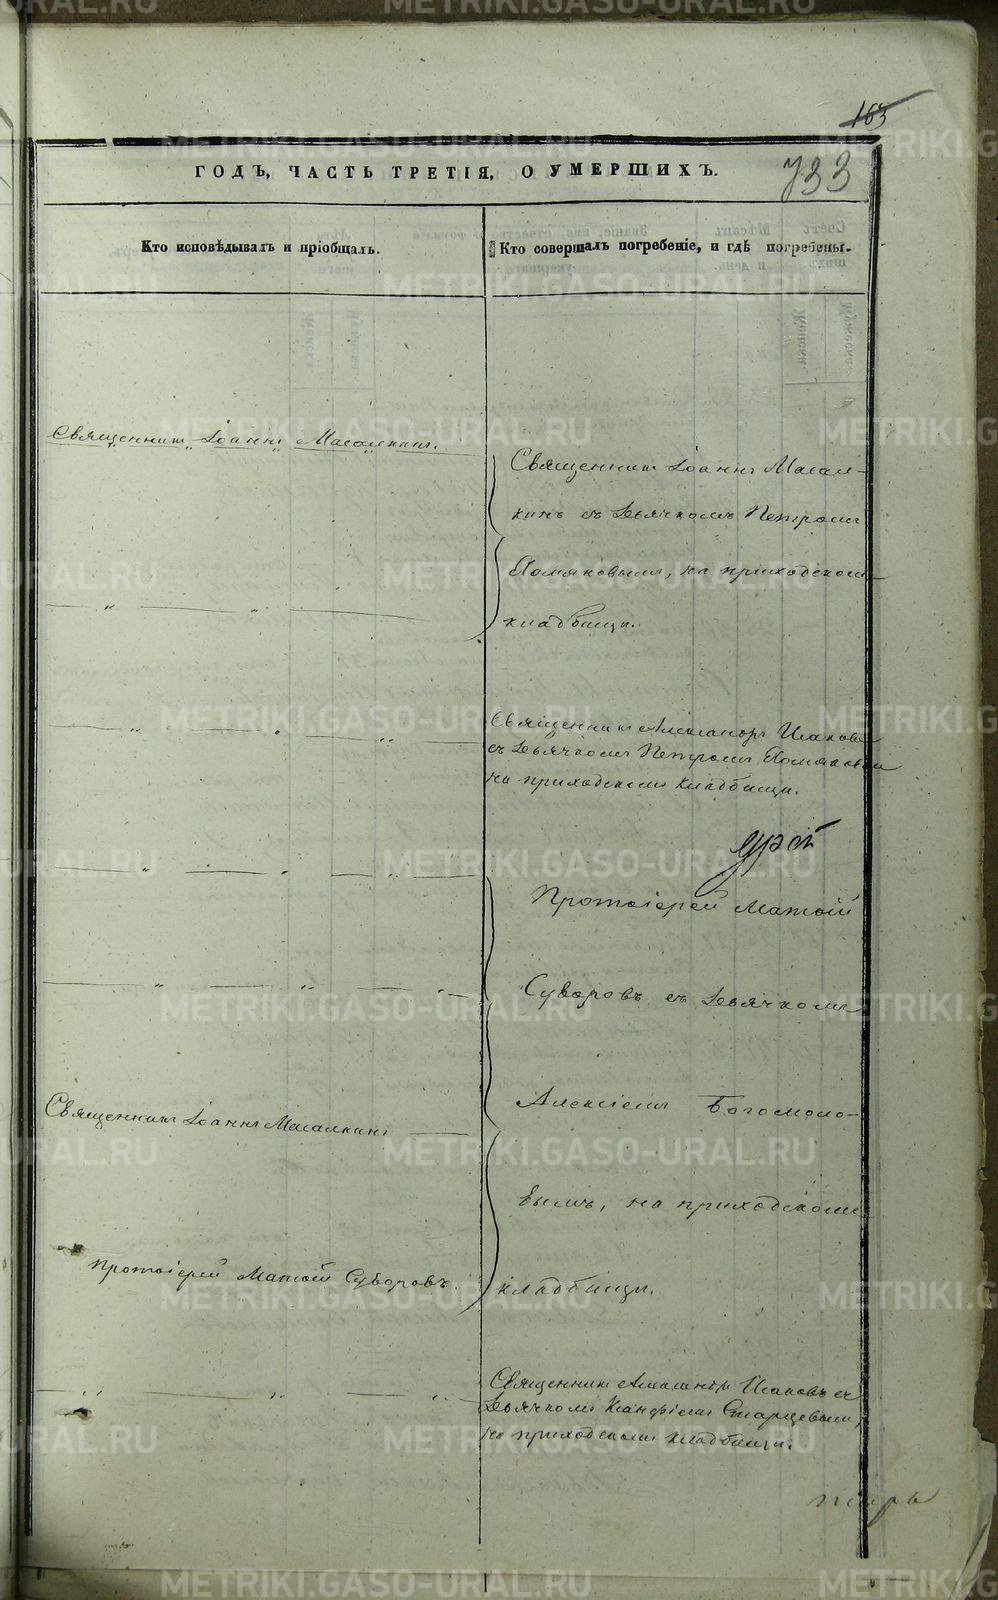 163
733
ГОДЪ, ЧАСТЬ ТРЕТІЯ, О УМЕРШИХЪ.
Кто исповѣдывалъ и пріобщалъ.
Кто совершалъ погребеніе, и гдѣ погребены.
Священникъ Іоаннъ Масалкинъ.
Священникъ Іоаннъ Масал-
кинъ съ Дьячкомъ Петромъ
на приходскомъ
кладбищѣ.
Священникъ Александръ Исаковъ
съ Дьячкомъ Петромъ
на приходскомъ кладбищѣ.
Протоіерей Матѳій
Суворовъ съ Дьячкомъ
Алексіемъ Богомоло-
вымъ, на приходскомъ
кладбищѣ.
Священникъ Іоаннъ Масалкинъ
Протоіерей Матѳій Суворовъ.
Священникъ Александръ Исаковъ съ
Дьячкомъ Старцевымъ,
на приходскомъ кладбищѣ.
METRIKI.GASO-URAL.RU